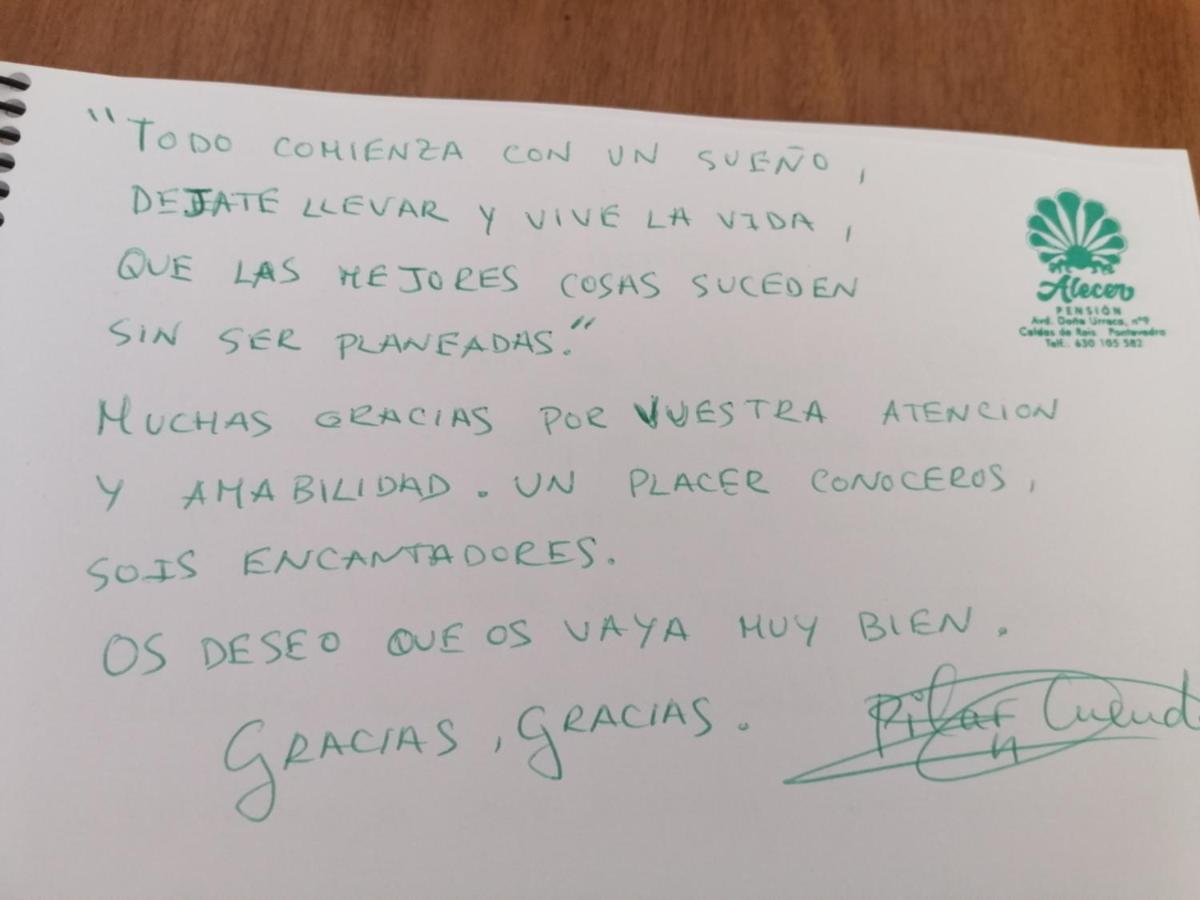 "TODO COMIENZA CON UN SUEÑO,
DEJATE LLEVAR Y VIVE LA VIDA,
QUE LAS MEJORES COSAS SUCEDEN
SIN SER PLANEADAS."
Alecer
PENSIÓN
Avd. Doña Urraca, nº9
Caldas de Reis. Pontevedra
Telf.: 630 105 582
MUCHAS GRACIAS POR VUESTRA ATENCION
Y AMABILIDAD. UN PLACER CONOCEROS,
SOIS ENCANTADORES.
OS DESEO QUE OS VAYA MUY BIEN.
GRACIAS, GRACIAS.
Pilar